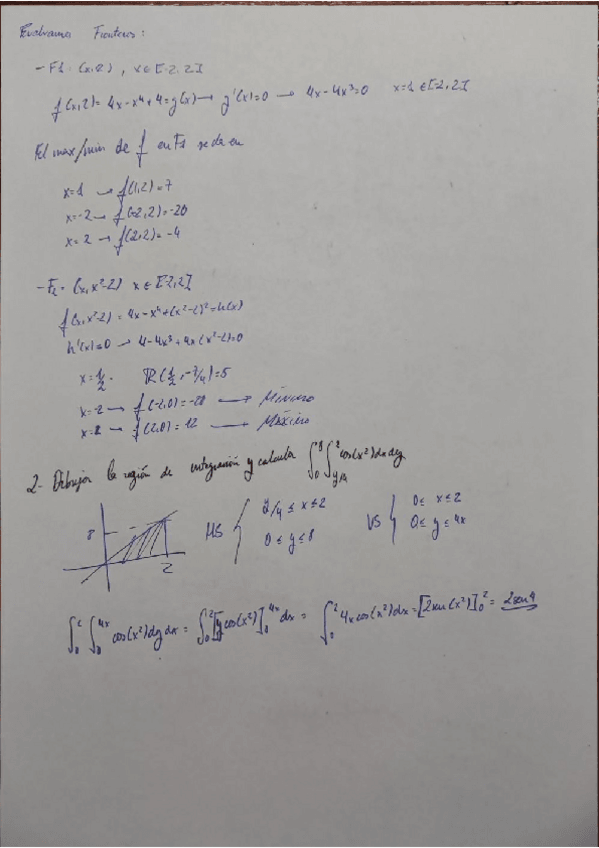 Evaluamos Fronteras:
- F1: (x,2), x∈[-2,2]
f(x,2)= 4x-x⁴+4=g(x) → g'(x)=0 → 4x-4x³=0 x=1 ∈[-2,2]
El max/min de f en F1 se da en
x=1 → f(1,2)=7
x=-2 → f(-2,2)=-20
x=2 → f(2,2)=-4
- F2 = (x, x²-2) x∈[-2,2]
f(x,x²-2) = 4x-x⁴+(x²-2)²=h(x)
h'(x)=0 → 4-4x³+4x(x²-2)=0
x=1/2. (1/2, -7/4)=5
x=-2 → f(-2,0)=-20 → Mínimo
x=2 → f(2,0)=12 → Máximo
2- Dibujar la región de integración y calcular ∫₀⁸ ∫_{y/4}² cos(x²)dxdy
8
2
HS { y/4 ≤ x ≤ 2
0 ≤ y ≤ 8
VS { 0 ≤ x ≤ 2
0 ≤ y ≤ 4x
∫₀² ∫₀^{4x} cos(x²)dydx = ∫₀² [y cos(x²)]₀^{4x} dx = ∫₀² 4x cos(x²)dx = [2sen(x²)]₀² = 2sen4